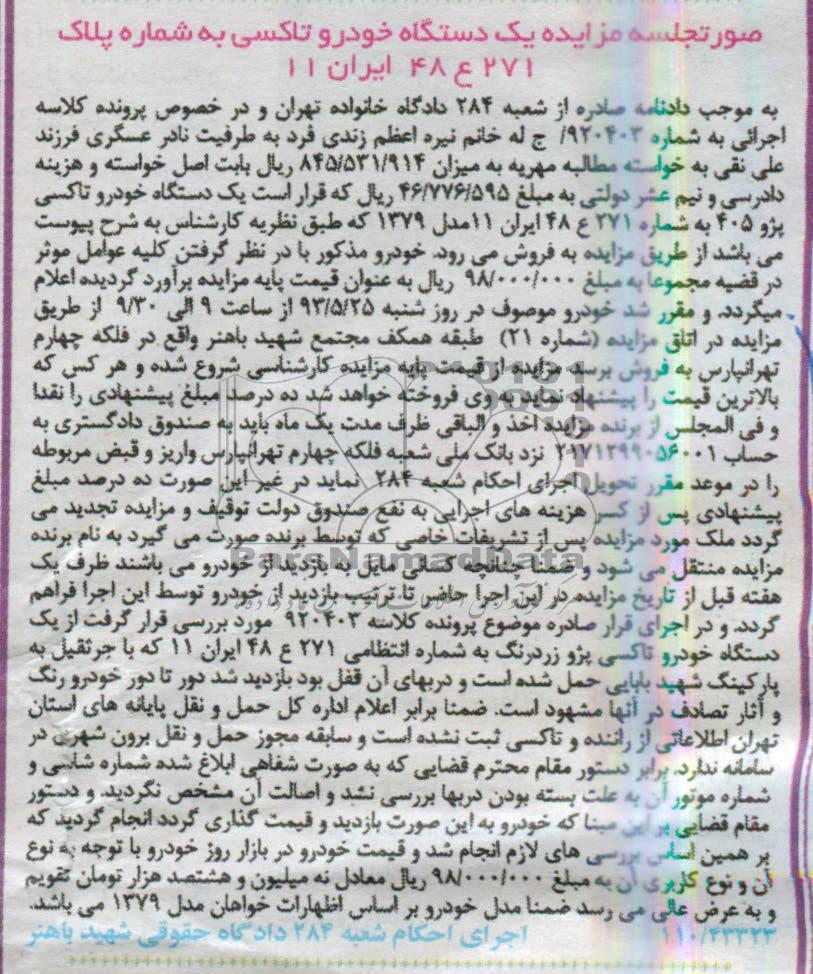 صورتجلسه مزایده یک دستگاه خودرو تاکسی به شماره پلاک
۲۷۱ ع ۴۸ ایران ۱۱
به موجب دادنامه صادره از شعبه ۲۸۴ دادگاه خانواده تهران و در خصوص پرونده کلاسه
اجرائی به شماره ۹۲۰۴۰۳/ ج له خانم نیره اعظم زندی فرد به طرفیت نادر عسگری فرزند
علی نقی به خواسته مطالبه مهریه به میزان ۸۴۵/۵۳۱/۹۱۴ ریال بابت اصل خواسته و هزینه
دادرسی و نیم عشر دولتی به مبلغ ۴۶/۷۷۶/۵۹۵ ریال که قرار است یک دستگاه خودرو تاکسی
پژو ۴۰۵ به شماره ۲۷۱ ع ۴۸ ایران ۱۱مدل ۱۳۷۹ که طبق نظریه کارشناس به شرح پیوست
می باشد از طریق مزایده به فروش می رود. خودرو مذکور با در نظر گرفتن کلیه عوامل موثر
در قضیه مجموعا به مبلغ ۹۸/۰۰۰/۰۰۰ ریال به عنوان قیمت پایه مزایده برآورد گردیده اعلام
میگردد. و مقرر شد خودرو موصوف در روز شنبه ۹۳/۵/۲۵ از ساعت ۹ الی ۹/۳۰ از طریق
مزایده در اتاق مزایده (شماره ۲۱) طبقه همکف مجتمع شهید باهنر واقع در فلکه چهارم
تهرانپارس به فروش برسد مزایده از قیمت پایه مزایده کارشناسی شروع شده و هر کس که
بالاترین قیمت را پیشنهاد نماید به وی فروخته خواهد شد ده درصد مبلغ پیشنهادی را نقدا
و فی المجلس از برنده مزایده اخذ و الباقی ظرف مدت یک ماه باید به صندوق دادگستری به
حساب ۲۱۷۱۲۹۹۰۵۶۰۰۱ نزد بانک ملی شعبه فلکه چهارم تهرانپارس واریز و قبض مربوطه
را در موعد مقرر تحویل اجرای احکام شعبه ۲۸۴ نماید در غیر این صورت ده درصد مبلغ
پیشنهادی پس از کسر هزینه های اجرایی به نفع صندوق دولت توقیف و مزایده تجدید می
گردد ملک مورد مزایده پس از تشریفات خاصی که توسط برنده صورت می گیرد به نام برنده
مزایده منتقل می شود و ضمنا چنانچه کسانی مایل به بازدید از خودرو می باشند ظرف یک
هفته قبل از تاریخ مزایده در این اجرا حاضر تا ترتیب بازدید از خودرو توسط این اجرا فراهم
گردد. و در اجرای قرار صادره موضوع پرونده کلاسه ۹۲۰۴۰۳ مورد بررسی قرار گرفت از یک
دستگاه خودرو تاکسی پژو زردرنگ به شماره انتظامی ۲۷۱ ع ۴۸ ایران ۱۱ که با جرثقیل به
پارکینگ شهید بابایی حمل شده است و دربهای آن قفل بود بازدید شد دور تا دور خودرو رنگ
و آثار تصادف در آنها مشهود است. ضمنا برابر اعلام اداره کل حمل و نقل پایانه های استان
تهران اطلاعاتی از راننده و تاکسی ثبت نشده است و سابقه مجوز حمل و نقل برون شهری در
سامانه ندارد. برابر دستور مقام محترم قضایی که به صورت شفاهی ابلاغ شده شماره شاسی و
شماره موتور آن به علت بسته بودن دربها بررسی نشد و اصالت آن مشخص نگردید. و دستور
مقام قضایی بر این مبنا که خودرو به این صورت بازدید و قیمت گذاری گردد انجام گردید که
بر همین اساس بررسی های لازم انجام شد و قیمت خودرو در بازار روز خودرو با توجه به نوع
آن و نوع کاربری آن به مبلغ ۹۸/۰۰۰/۰۰۰ ریال معادل نه میلیون و هشتصد هزار تومان تقویم
و به عرض عالی می رسد ضمنا مدل خودرو بر اساس اظهارات خواهان مدل ۱۳۷۹ می باشد.
۱۱۰/۴۳۳۲۳ اجرای احکام شعبه ۲۸۴ دادگاه حقوقی شهید باهنر
ParsNamadData